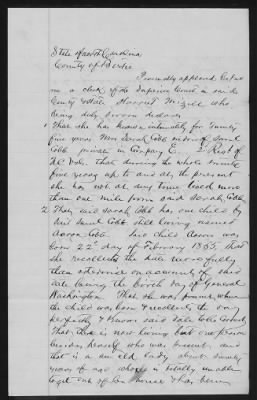 State of North Carolina
County of Bertie
Personally appeared before
me a clerk of the Superior Court in said
County & State Harriet Mizell who
being duly sworn declares
1 That she has known intimately for twenty
five years Mrs Sarah Cobb widow of Saml
Cobb private in Company E. 2 Regt of
N.C. Vols. that during the whole twenty
five years up to and at the present
she has not at any time lived more
than one mile from said Sarah Cobb
2. That said Sarah Cobb has one child by
said Saml Cobb still living named
Aaron Cobb. Said child Aaron was
born 22d day of February 1865, that
she recollects the date more fully
than otherwise on account of said
date being the birth day of General
Washington. That she was present when
the child was born & recollects the day
perfectly & knows said date to be correct
That there is now living but one person
besides herself who was present, and
that is an old lady about ninety
years of age who is totally unable
to get out of her house & has been